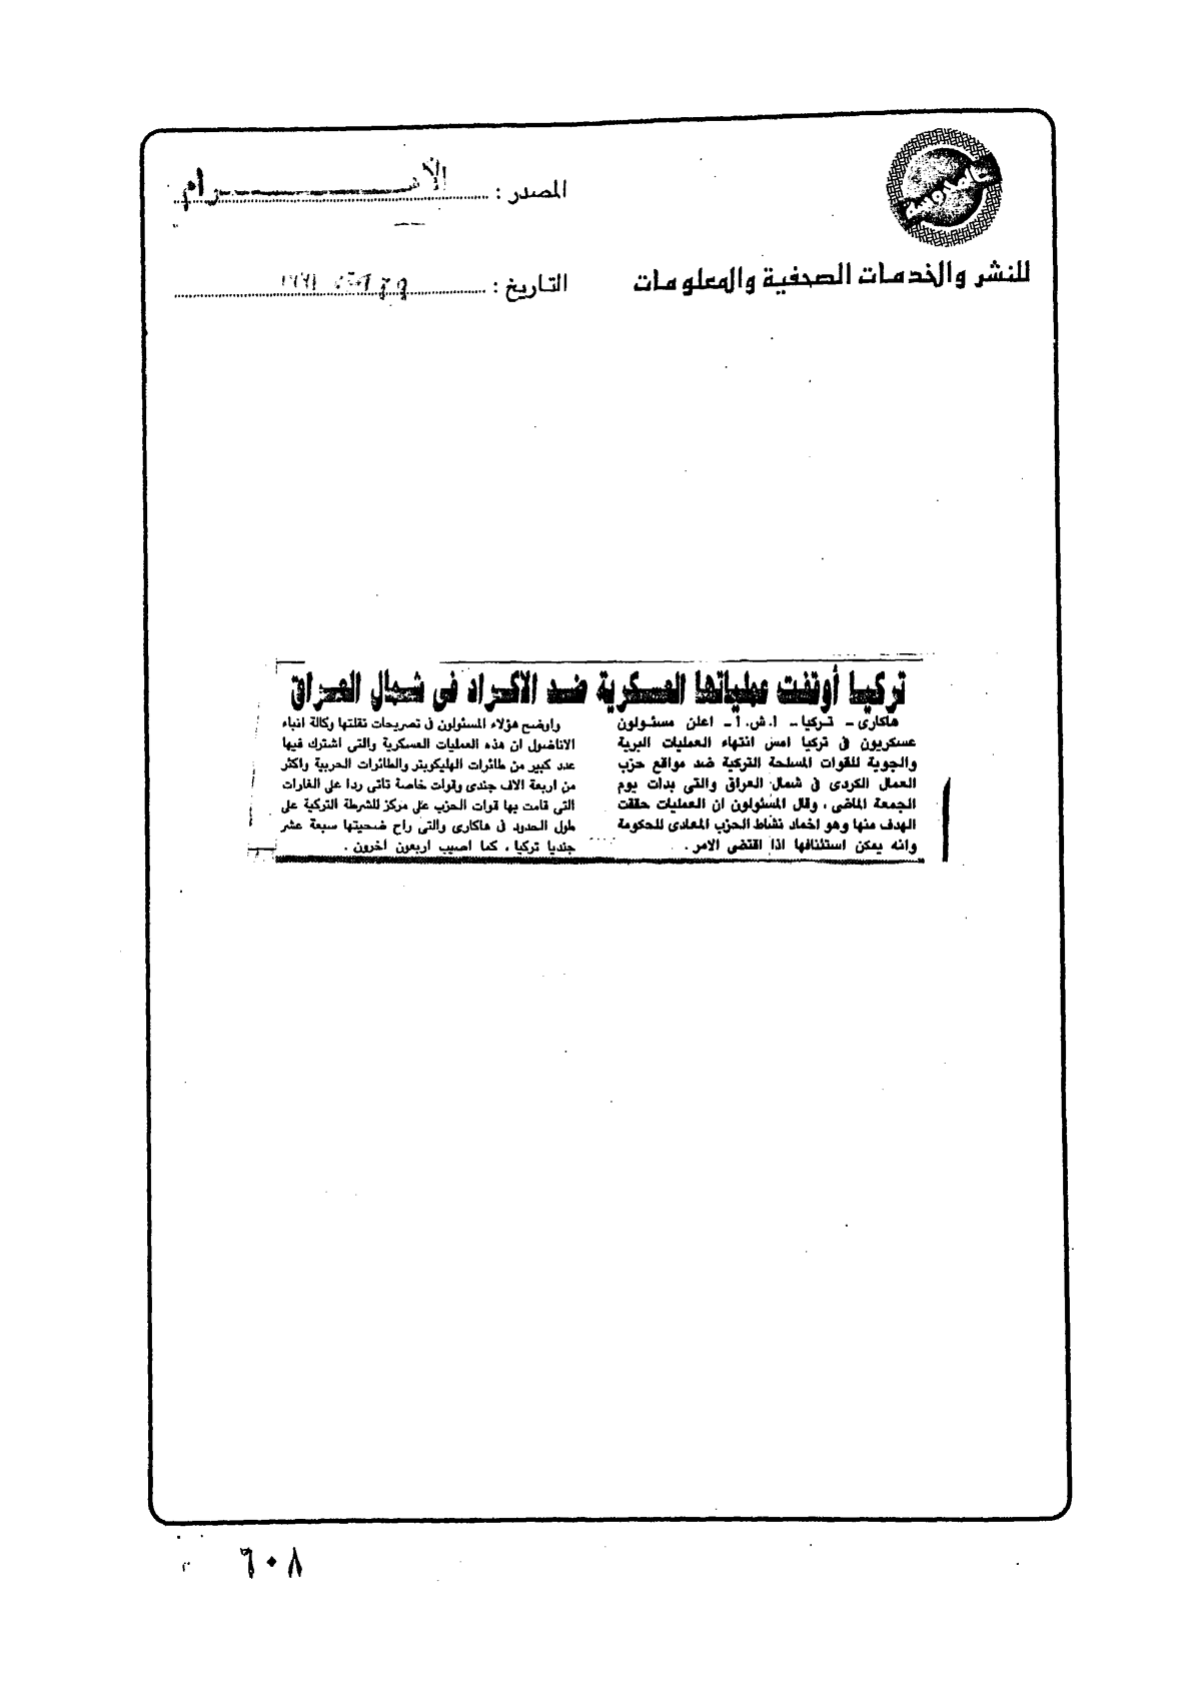 المصدر : الأهـــــــرام
للنشر والخدمات الصحفية والمعلومات
التاريخ :
تركيا أوقفت عملياتها العسكرية ضد الاكراد فى شمال العراق
هاكارى ـ تركيا ـ ا. ش. ا ـ اعلن مسئولون
عسكريون فى تركيا امس انتهاء العمليات البرية
والجوية للقوات المسلحة التركية ضد مواقع حزب
العمال الكردى فى شمال العراق والتى بدات يوم
الجمعة الماضى ، وقال المسئولون ان العمليات حققت
الهدف منها وهو اخماد نشاط الحزب المعادى للحكومة
وانه يمكن استئنافها اذا اقتضى الامر .
واوضح هؤلاء المسئولون فى تصريحات نقلتها وكالة انباء
الاناضول ان هذه العمليات العسكرية والتى اشترك فيها
عدد كبير من طائرات الهليكوبتر والطائرات الحربية واكثر
من اربعة الاف جندى وقوات خاصة تاتى ردا على الغارات
التى قامت بها قوات الحزب على مركز للشرطة التركية على
طول الحدود فى هاكارى والتى راح ضحيتها سبعة عشر
جنديا تركيا ، كما اصيب اربعون اخرون .
٦٠٨